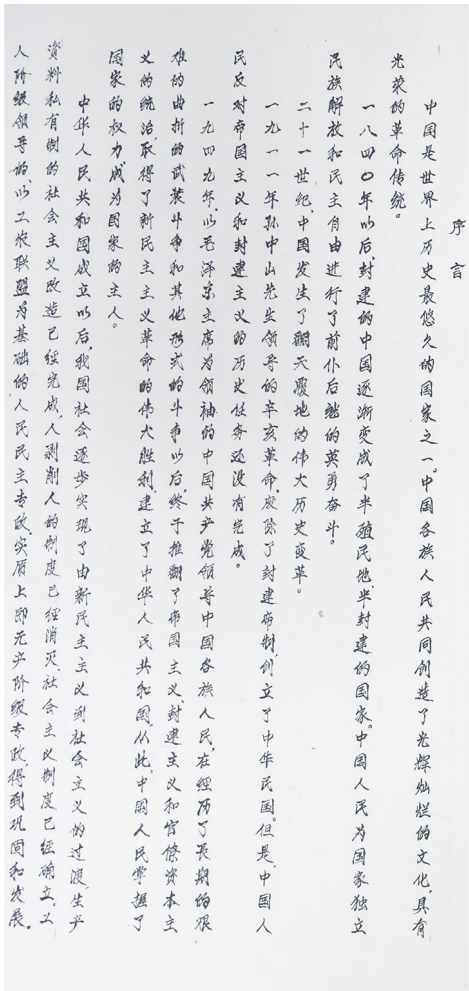 序言
中国是世界上历史最悠久的国家之一。中国各族人民共同创造了光辉灿烂的文化，具有
光荣的革命传统。
一八四〇年以后，封建的中国逐渐变成了半殖民地、半封建的国家。中国人民为国家独立、
民族解放和民主自由进行了前仆后继的英勇奋斗。
二十一世纪，中国发生了翻天覆地的伟大历史变革。
一九一一年孙中山先生领导的辛亥革命，废除了封建帝制，创立了中华民国。但是，中国人
民反对帝国主义和封建主义的历史任务还没有完成。
一九四九年，以毛泽东主席为领袖的中国共产党领导中国各族人民，在经历了長期的艰
难的曲折的武装斗争和其他形式的斗争以后，终于推翻了帝国主义、封建主义和官僚資本主
义的统治，取得了新民主主义革命的伟大胜利，建立了中华人民共和国。从此，中国人民掌握了
国家的权力，成为国家的主人。
中华人民共和国成立以后，我国社会逐步实现了由新民主主义到社会主义的过渡。生产
資料私有制的社会主义改造已經完成，人剥削人的制度已經消灭，社会主义制度已經确立。工
人阶级领导的、以工农联盟为基础的人民民主专政，实质上即无产阶级专政，得到巩固和发展。